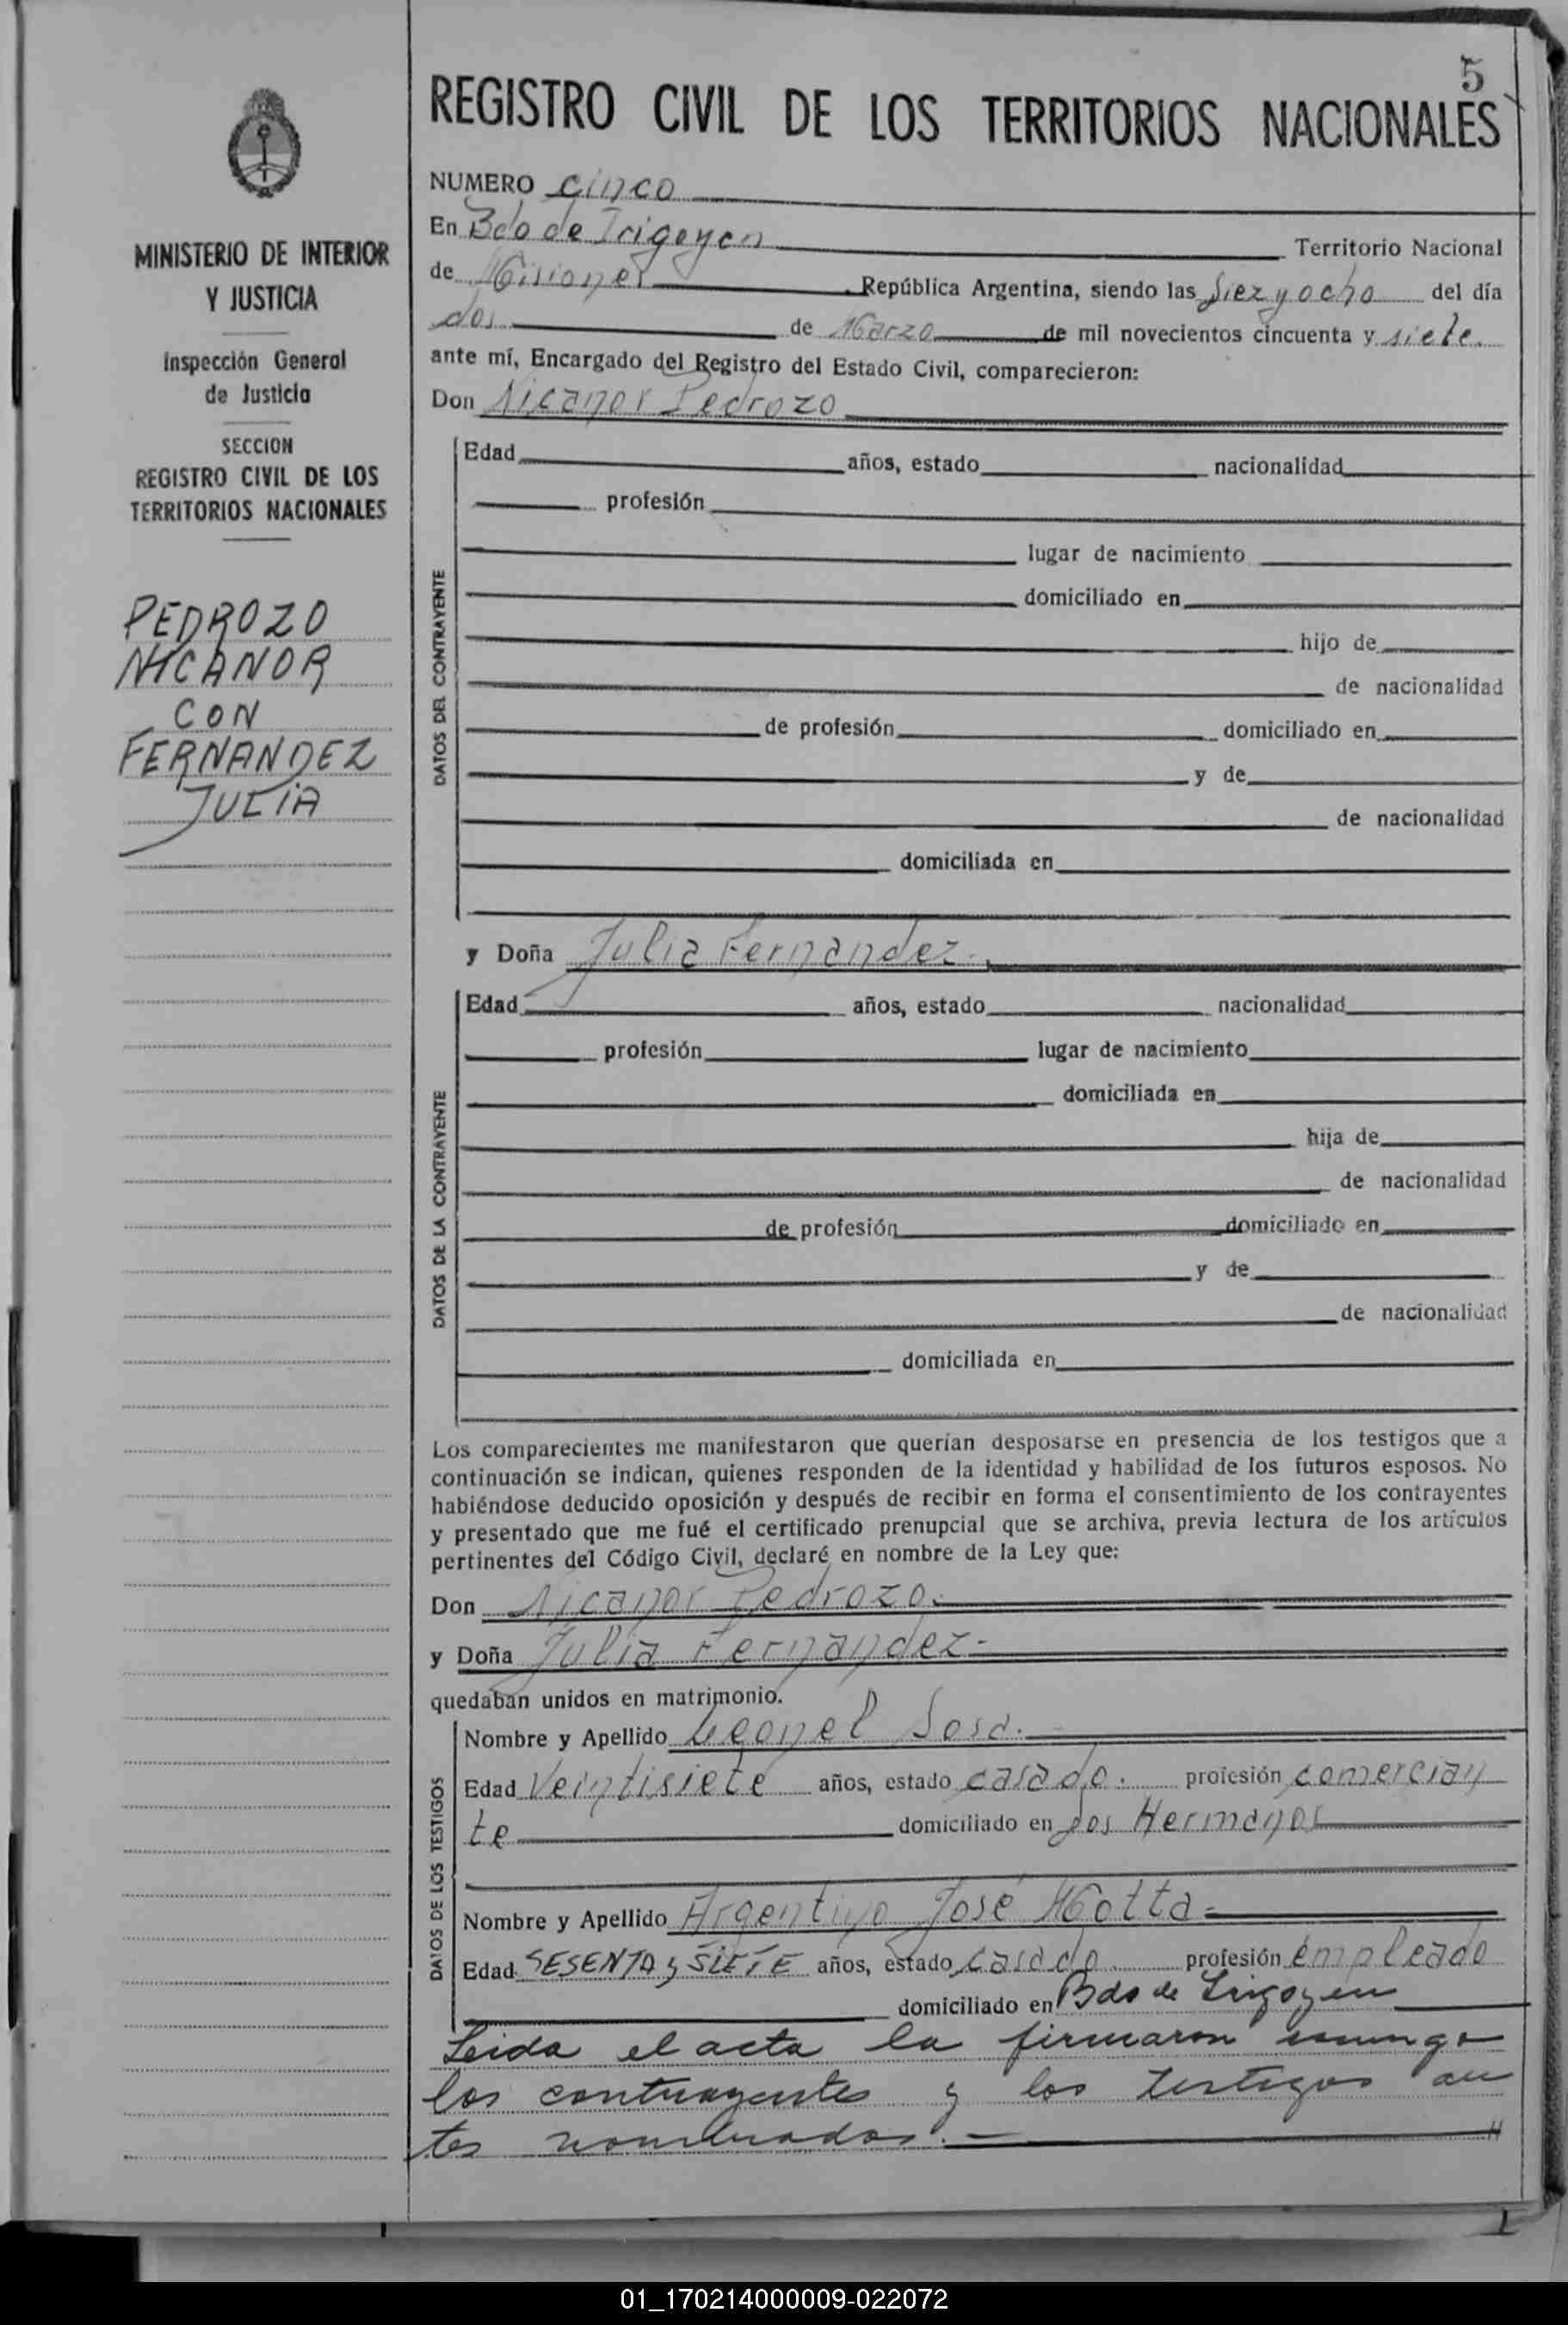 5
REGISTRO CIVIL DE LOS TERRITORIOS NACIONALES
MINISTERIO DE INTERIOR
Y JUSTICIA
Inspección General
de Justicia
SECCION
REGISTRO CIVIL DE LOS
TERRITORIOS NACIONALES
PEDROZO
NICANOR
CON
FERNANDEZ
JULIA
NUMERO cinco
En Bdo de Irigoyen Territorio Nacional
de Misiones República Argentina, siendo las diez y ocho del día
dos de Marzo de mil novecientos cincuenta y siete.
ante mí, Encargado del Registro del Estado Civil, comparecieron:
Don Nicanor Pedrozo
DATOS DEL CONTRAYENTE
Edad años, estado nacionalidad
profesión
lugar de nacimiento
domiciliado en
hijo de
de nacionalidad
de profesión domiciliado en
y de
de nacionalidad
domiciliada en
y Doña Julia Fernandez.
DATOS DE LA CONTRAYENTE
Edad años, estado nacionalidad
profesión lugar de nacimiento
domiciliada en
hija de
de nacionalidad
de profesión domiciliado en
y de
de nacionalidad
domiciliada en
Los comparecientes me manifestaron que querían desposarse en presencia de los testigos que a
continuación se indican, quienes responden de la identidad y habilidad de los futuros esposos. No
habiéndose deducido oposición y después de recibir en forma el consentimiento de los contrayentes
y presentado que me fué el certificado prenupcial que se archiva, previa lectura de los artículos
pertinentes del Código Civil, declaré en nombre de la Ley que:
Don Nicanor Pedrozo.
y Doña Julia Fernandez.-
quedaban unidos en matrimonio.
DATOS DE LOS TESTIGOS
Nombre y Apellido Leonel Sosa.
Edad Veintisiete años, estado casado. profesión comercian
te domiciliado en Dos Hermanas
Nombre y Apellido Argentino José Motta=
Edad SESENTA y SIETE años, estado casado profesión empleado
domiciliado en Bdo de Irigoyen
Leida el acta la firmaron conmigo
los contrayentes y los testigos an
tes nombrados.-
01_170214000009-022072